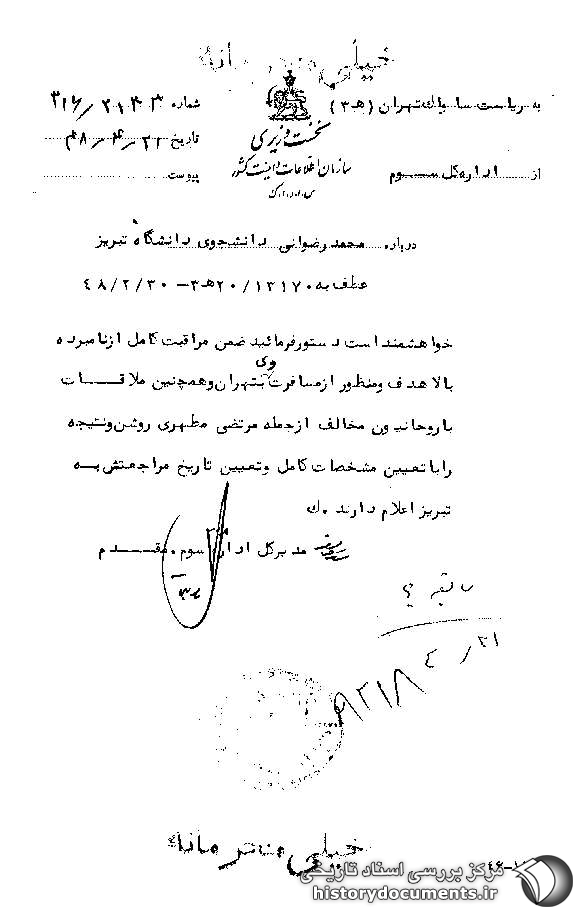 خیلی محرمانه
به ریاست ساواك تهران (هـ ۳) شماره ۳۱۶/۲۱۴۳
نخست وزیری
تاریخ ۴۸/۴/۲۱
سازمان اطلاعات و امنیت کشور
از اداره کل سوم پیوست
س.ا.و.ا.ك
درباره محمد رضوانی دانشجوی دانشگاه تبریز
عطف به ۲۰/۱۳۱۷۰هـ ۳ – ۴۸/۲/۳۰
خواهشمند است دستور فرمائید ضمن مراقبت کامل از نامبرده
بالا هدف و منظور از مسافرت وی بتهران و همچنین ملاقات
با روحانیون مخالف از جمله مرتضی مطهری روشن و نتیجه
را با تعیین مشخصات کامل و تعیین تاریخ مراجعتش به
تبریز اعلام دارند . ك
مدیر کل اداره سوم . مقدم
سابقه ؟
۴/۲۱
۹۲۱۸
خیلی محرمانه
مرکز بررسی اسناد تاریخی
historydocuments.ir